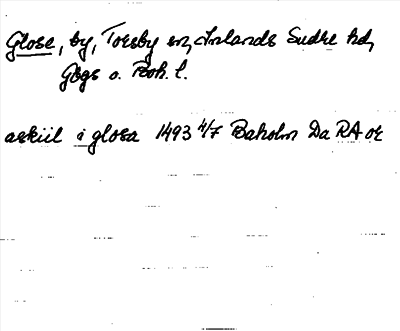 Glose, by, Torsby sn, Inlands Södre hd,
Gbgs o. Boh. l.
askiil i glosa 1493 4/7 Baholm Da RA or